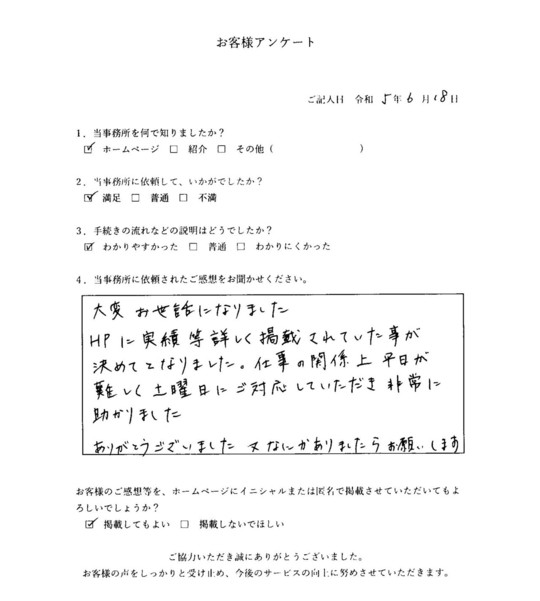 お客様アンケート
ご記入日 令和 5年 6月 18日
1．当事務所を何で知りましたか？
☑ ホームページ □ 紹介 □ その他（ ）
2．当事務所に依頼して、いかがでしたか？
☑ 満足 □ 普通 □ 不満
3．手続きの流れなどの説明はどうでしたか？
☑ わかりやすかった □ 普通 □ わかりにくかった
4．当事務所に依頼されたご感想をお聞かせください。
大変 お世話になりました
HPに実績等詳しく掲載されていた事が
決めてとなりました。仕事の関係上 平日が
難しく土曜日にご対応していただき非常に
助かりました
ありがとうございました 又なにかありましたらお願いします
お客様のご感想等を、ホームページにイニシャルまたは匿名で掲載させていただいてもよ
ろしいでしょうか？
☑ 掲載してもよい □ 掲載しないでほしい
ご協力いただき誠にありがとうございました。
お客様の声をしっかりと受け止め、今後のサービスの向上に努めさせていただきます。